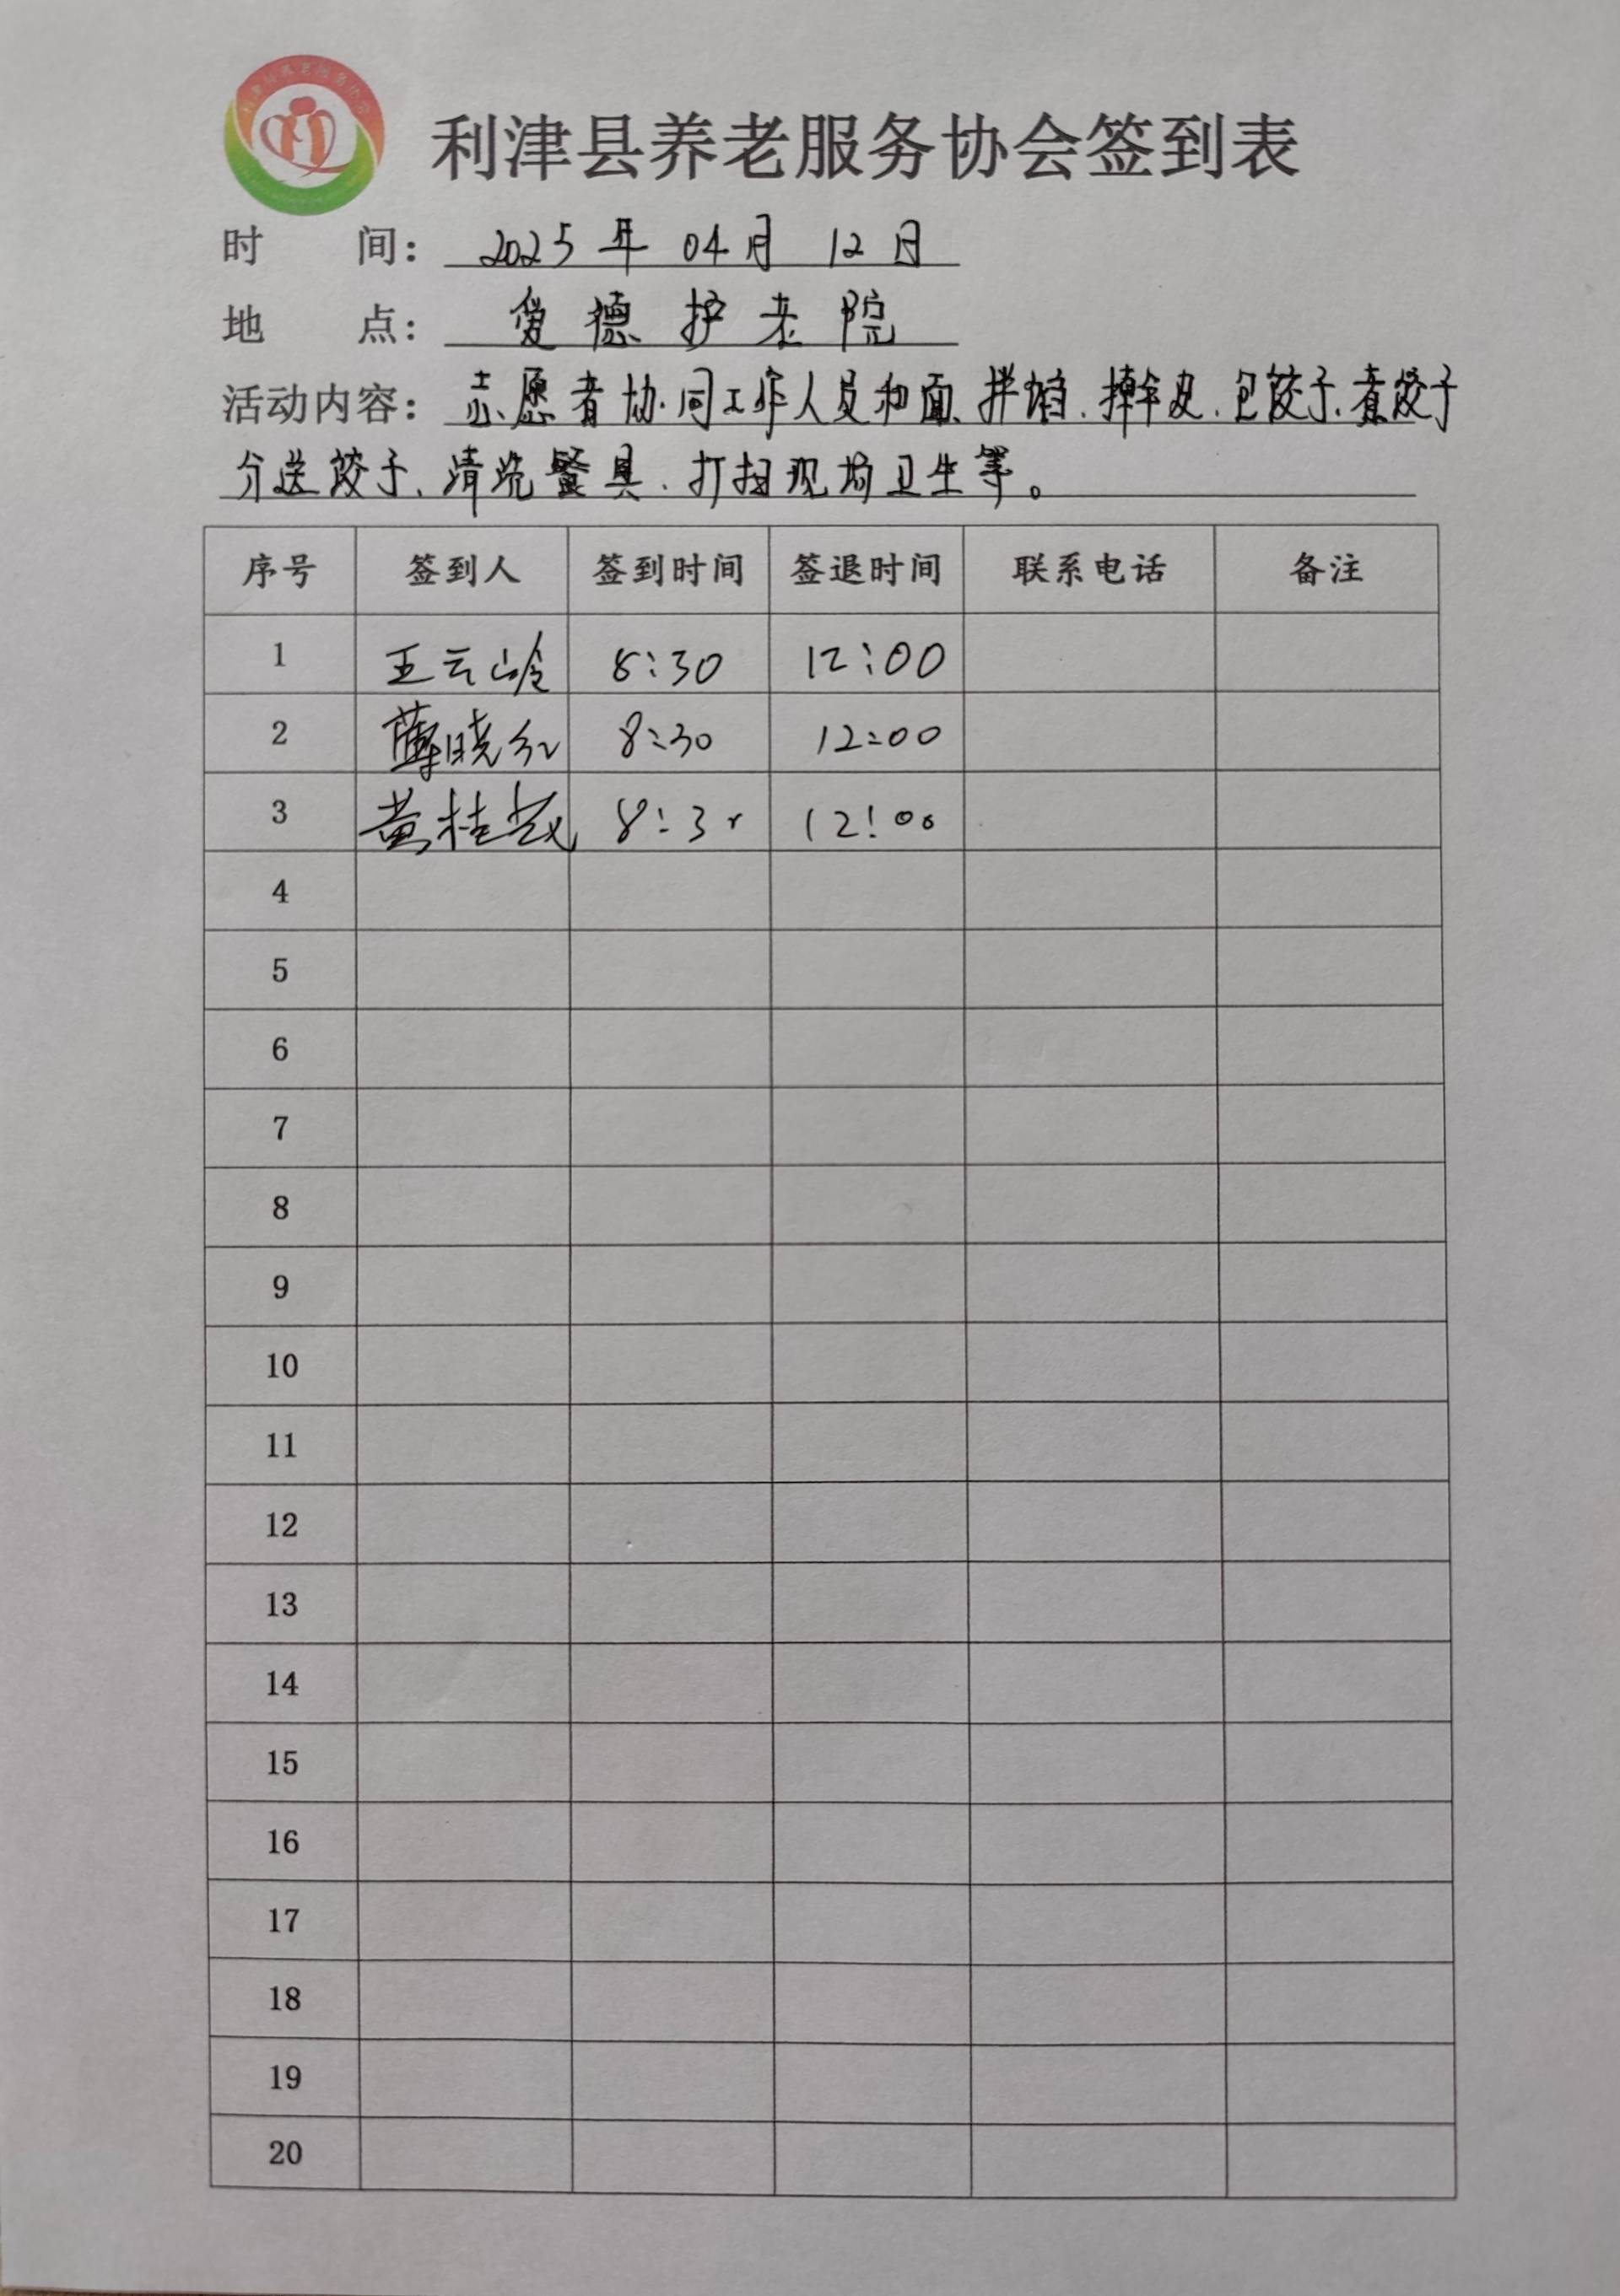 利津县养老服务协会
利津县养老服务协会签到表
时 间: 2025年 04月 12日
地 点: 爱德护老院
活动内容: 志愿者协同工作人员和面、拌馅、擀皮、包饺子、煮饺子
分送饺子、清洗餐具、打扫现场卫生等。
序号 签到人 签到时间 签退时间 联系电话 备注
1 王云岭 8:30 12:00
2 薄晓红 8:30 12:00
3 黄桂 8:30 12:00
4
5
6
7
8
9
10
11
12
13
14
15
16
17
18
19
20